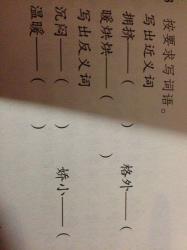 3 按要求写词语。
写出近义词
拥挤——(        )    格外——(
暖烘烘——(        )
写出反义词
沉闷——(        )    娇小——(
温暖——(        )